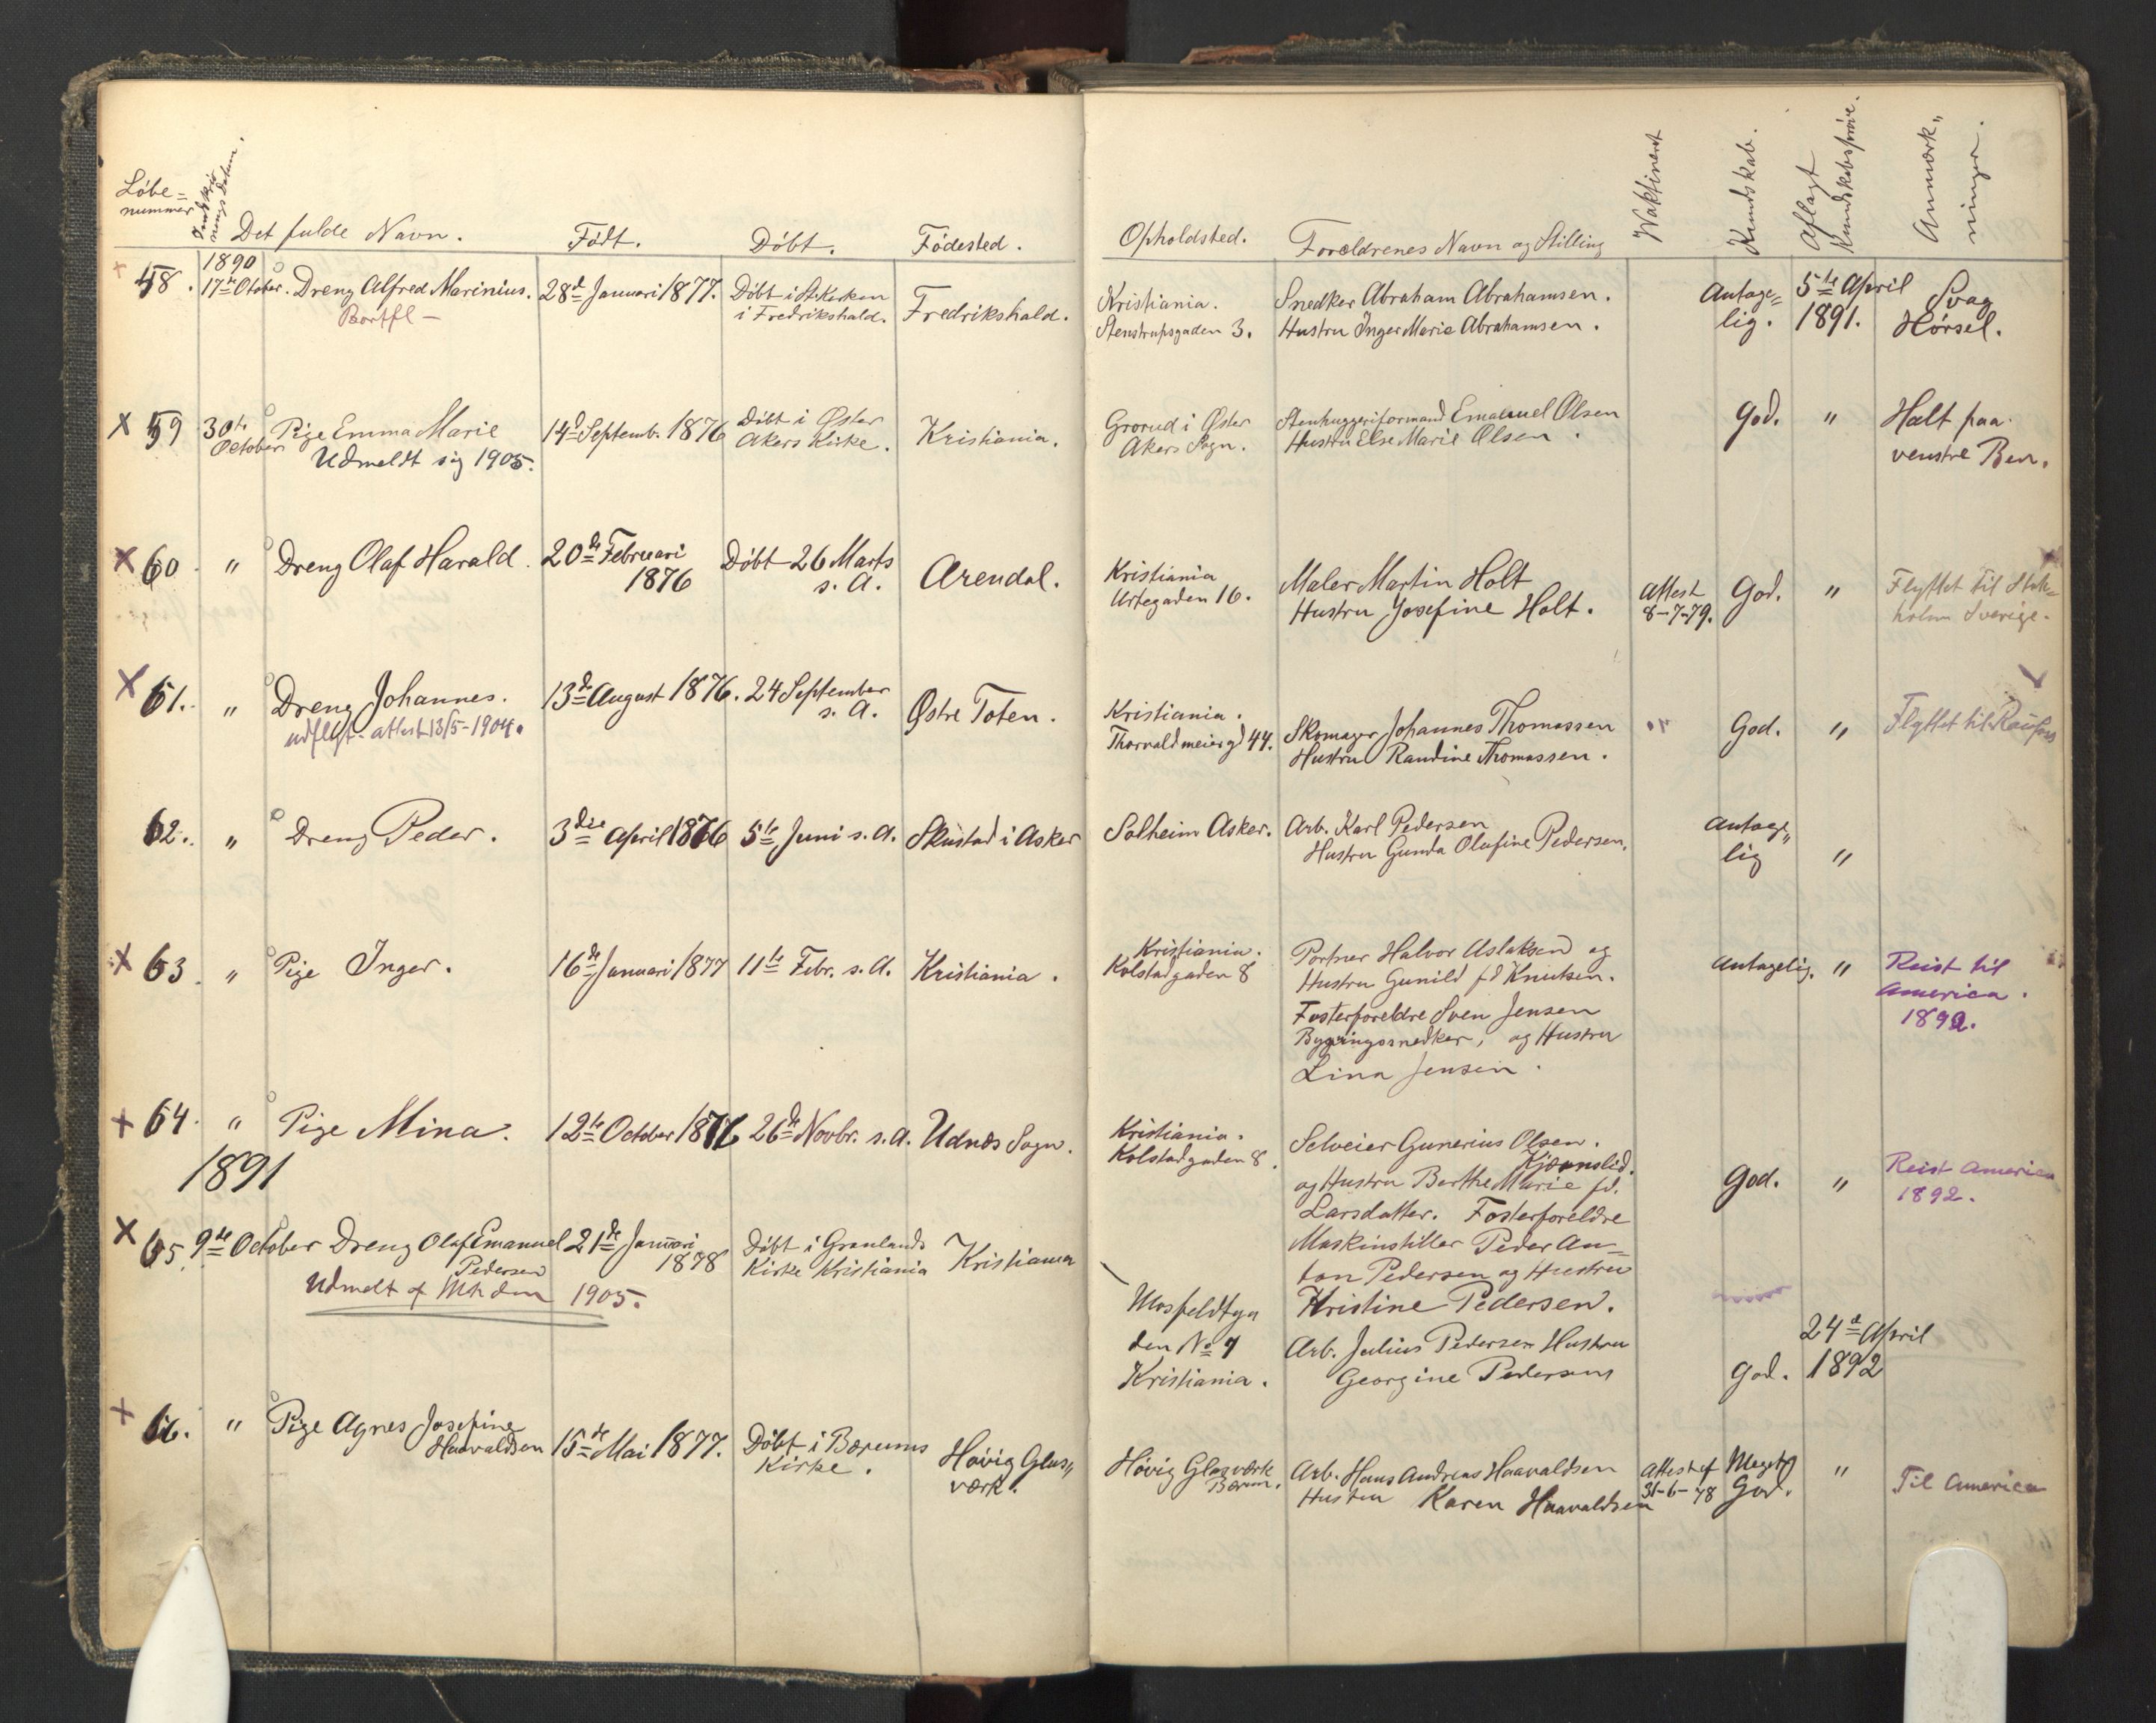 Löbe=
nummer
Det fulde Navn.
Födt.
Döbt.
Födested.
Opholdsted.
Foreldrenes Navn og Stilling
Waktineret
Kundskab.
Aflagt
Kundskabspröve.
Anmærk„
ninger.
1890
58. 17de Otober. Dreng Alfred Marinius. 28de Januari 1877. Döbt i St. Kirken Fredrikshald. Kristiania. Snedker Abraham Abrahamsen. Antage= 5te April Svag
i Fredrikshald. Stenstrupsgaden 3. Hustru Inger Marie Abrahamsen. lig. 1891. Hörsel.
59 30te Pige Emma Marie 14de Septemb. 1876 Döbt i Øster Kristiania. Grorud i Øster Stenhuggeriformand Emanuel Olsen God. " Halt paa
October Akers Kirke. Akers Sogn. Hustru Else Marie Olsen. venstre Ben.
Udmeldt sig 1905.
60 " Dreng Olaf Harald. 20de Februari Döbt 26 Marts Arendal. Kristiania Maler Martin Holt Attest God. " Flyttet til Stok=
1876 s. A. Urtegaden 16. Hustru Josefine Holt. 8-7-79. holm Sverige.
61. " Dreng Johannes. 13de August 1876. 24 September Østre Toten. Kristiania. Skomager Johannes Thomassen " God. " Flyttet til Raufoss
s. A. Thorvaldmeiersgd 44. Hustru Randine Thomassen.
udflyt. attest 13/5-1904.
62. " Dreng Peder. 3die April 1876 5te Juni s. A. Skustad i Asker Solheim Asker. Arb. Karl Pedersen Antage„
Hustru Gunda Olufine Pedersen. lig "
63. " Pige Inger. 16de Januari 1877 11te Febr. s. A. Kristiania. Kristiania. Portner Halvor Aslaksen og Antagelig. " Reist til
Kolstadgaden 8 Hustru Gunild fd Knutsen. America.
Fosterforeldre Sven Jensen 1892.
Bygningssnedker, og Hustru
Lina Jensen.
64. " Pige Mina. 12te October 1876 26de Novbr. s. A. Udnæs Sogn. Kristiania. Selveier Gunerius Olsen.
Kolstadgaden 8. Kjærnslid.
og Hustru Berthe Marie fd. God. " Reist America
Larsdatter. Fosterforeldre 1892.
Maskinstiller Peder An=
ton Pedersen og Hustru
Kristine Pedersen.
1891
65. 9de October Dreng Olaf Emanuel 21de Januari Döbt i Grønlands Kristiania
Pedersen 1878 Kirke Kristiania
Udmelt af Mth den 1905.
Mosfeldtga
den No 7 Arb. Julius Pedersen Hustru 24de April
Kristiania. Georgine Pedersens God. 1892
66. " Pige Agnes Josefine 15de Mai 1877. Döbt i Bærums Hövig Glas„ Hövig Glasværk Arb. Hans Andreas Haavaldsen Attest af Meget " Til America
Haavaldsen Kirke. værk. Bærum. Hustru Karen Haavaldsen 31-6-78 God.